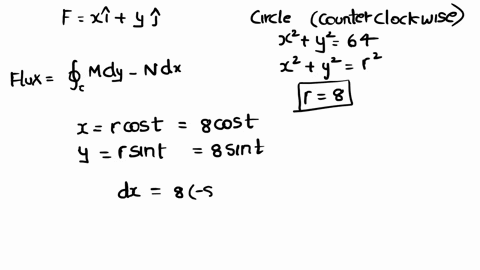 F = xî + yĵ
Circle (counterclockwise)
x² + y² = 64
x² + y² = r²
r = 8
Flux = ∮c Mdy − Ndx
x = rcost = 8cost
y = rsint = 8sint
dx = 8(-s